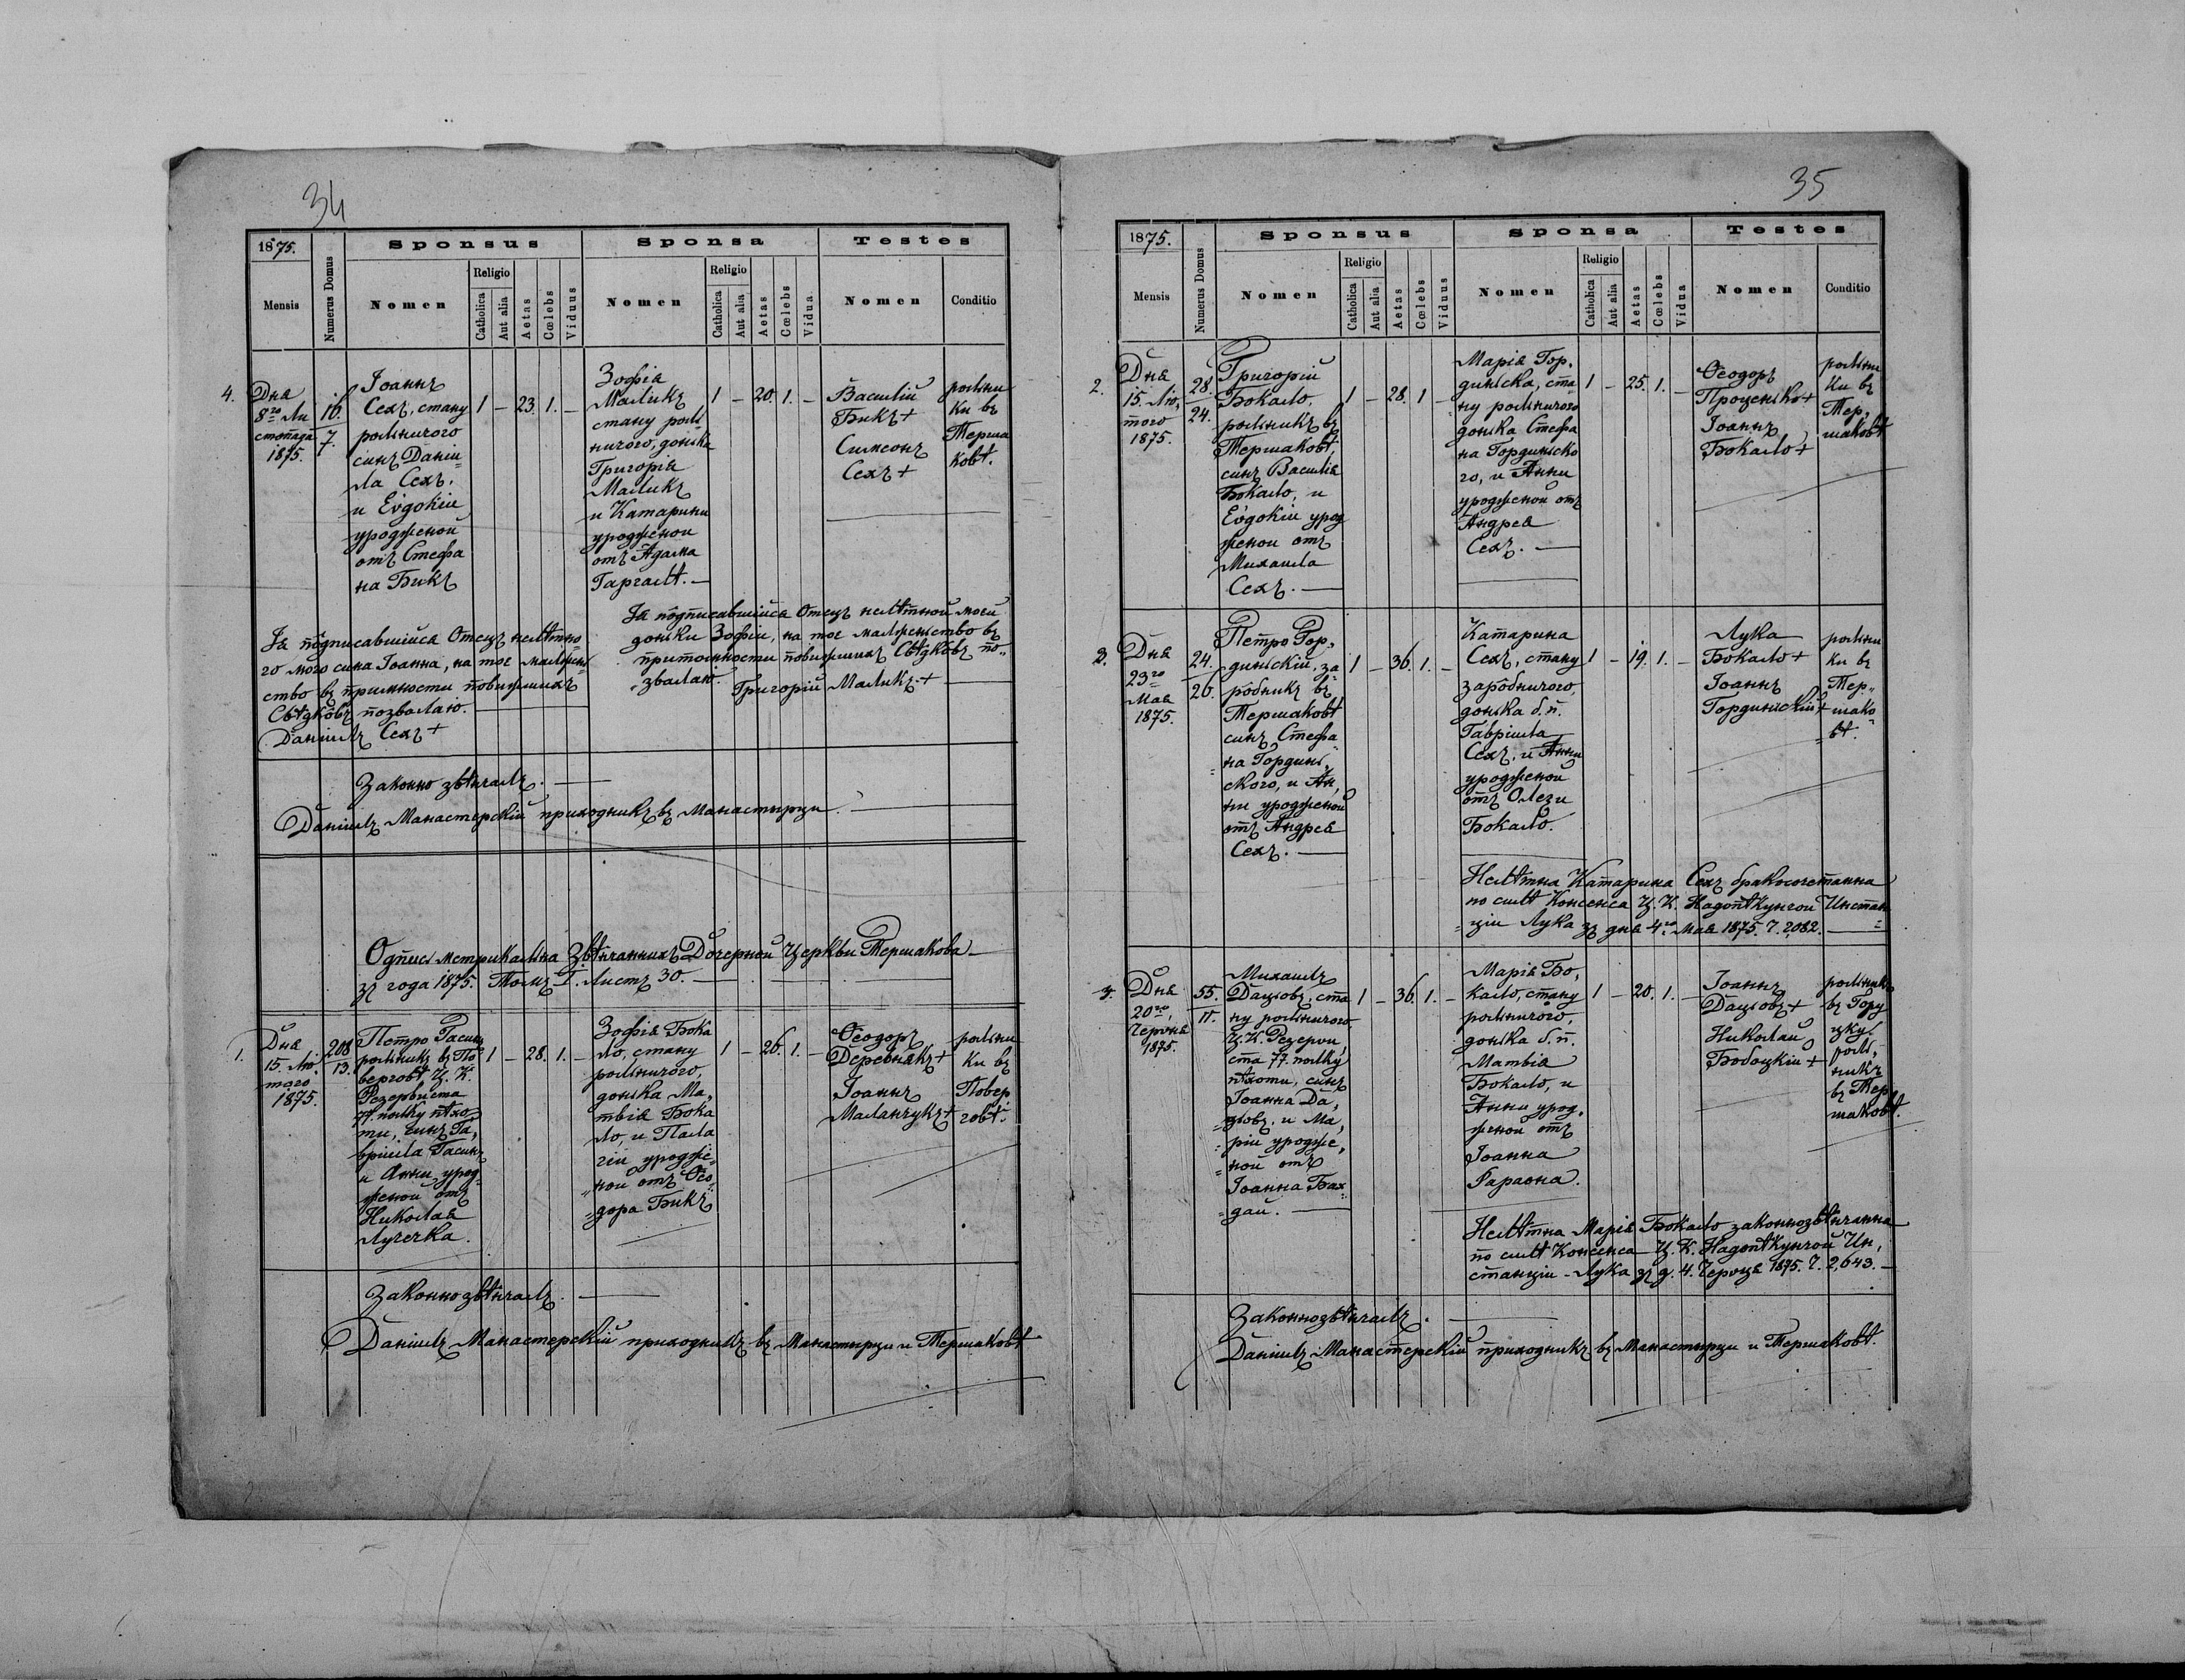 34
1875.
Mensis
Numerus Domus
Sponsus
Nomen
Religio
Catholica
Aut alia
Aetas
Cœlebs
Viduus
Sponsa
Nomen
Religio
Catholica
Aut alia
Aetas
Cœlebs
Vidua
Testes
Nomen
Conditio
4.
Дня
8го Ли
стопада
1875.
16.
7.
Іоаннъ
Сехъ, стану
рольничого
синъ Данiи
ла Сехъ,
и Еѵдокіи
урожденой
отъ Стефа
на Бикъ
1 – 23. 1. –
Зофія
Маликъ
стану роль
ничого, донька
Григорія
Маликъ
и Катарини
урожденои
отъ Адама
Гаргалѣ. —
1 – 20. 1. –
Василій
Бикъ +
Симеонъ
Сехъ +
рольни
ки въ
Терша
ковѣ.
Я пôдписавшійся Отецъ нелѣтно
го мого сина Іоанна, на тое малжень
ство въ примности повизшихъ
Свѣдкôвъ позваляю.
Данiилъ Сехъ +
Я пôдписавшійся Отецъ нелѣтной моеи
доньки Зофіи, на тое малженьство въ
притомности повизшихъ Свѣдкôвъ по„
„зваляю.
Григорій Маликъ +
Законно звѣнчалъ. —
Данiилъ Манастерскій приходникъ въ Манастирци.
Одпись метрикальна Звѣнчанихъ Дочерной Церкви Тершакова —
зъ года 1875. Томъ I. Листъ 30. —
1.
Дня
15. Лю
того
1875.
208
13.
Петро Гасинъ
рольникъ въ По
верговѣ Ц. К.
Резервиста
77. полку пѣхо
ти, синъ Га„
врiила Гасинъ
и Анни, урод
женой отъ
Николая
Лучечка.
1 – 28. 1. –
Зофія Бока
ло, стану
рольничого,
донька Ма„
твія Бока
ло, и Пела
гіи урожде„
„ной отъ Ѳео„
„дора Бикъ
1 – 26. 1. –
Ѳеодоръ
Деревнякъ +
Іоаннъ
Маланчукъ +
рольни
ки въ
Повер
говѣ.
Законнозвѣнчалъ. —
Данiилъ Манастерскій приходникъ въ Манастирци и Тершаковѣ
35
1875.
Mensis
Numerus Domus
Sponsus
Nomen
Religio
Catholica
Aut alia
Aetas
Cœlebs
Viduus
Sponsa
Nomen
Religio
Catholica
Aut alia
Aetas
Cœlebs
Vidua
Testes
Nomen
Conditio
2.
Дня
15. Лю„
того
1875.
28.
24.
Григорій
Бокало,
рольникъ въ
Тершаковѣ,
синъ Василія
Бокало, и
Еѵдокіи урод
женои отъ
Михаила
Сехъ. —
1 – 28. 1 –
Марія Гор„
диньска, ста
ну рольничого
донька Стефа
на Гординьско
го, и Анни
урожденои отъ
Андрея
Сехъ. —
1 – 25. 1. –
Ѳеодоръ
Проценько +
Іоаннъ
Бокало +
рольни
ки въ
Тер„
шаковѣ
3.
Дня
23го
Мая
1875.
24.
26.
Петро Гор„
диньскій, за
рôбникъ въ
Тершаковѣ
синъ Стефа
на Гординь„
ского, и Ан„
ни урожденой
отъ Андрея
Сехъ. —
1 – 36. 1. –
Катарина
Сехъ, стану
зарôбничого,
донька б. п.
Гаврiила
Сехъ, и Анни
урожденой
отъ Олези
Бокало.
1 – 19. 1. –
Лука
Бокало +
Іоаннъ
Гординьскій +
рольни
ки въ
Тер„
шако
„вѣ.
Нелѣтна Катарина Сехъ бракосочетанна
по силѣ Консенса Ц. К. Надопѣкунчои Инстан
„ціи Лука зъ дня 4го Мая 1875. Ч. 2,082. —
4.
Дня
20го
Червня
1875.
55.
11.
Михаилъ
Дацювъ, ста
ну рольничого,
Ц. К. Резерви
ста 77. полку
пѣхоти, синъ
Іоанна Да„
„цювъ, и Ма„
„ріи урожде„
„ной отъ
Іоанна Бах„
„дай. —
1 – 36. 1. –
Марія Бо„
кало, стану
рольничого,
донька б. п.
Матвія
Бокало, и
Анни урод„
женой отъ
Іоанна
Фараона.
1 – 20. 1. –
Іоаннъ
Дацювъ +
Николай
Бобоцкій +
рольникъ
въ Гору
цку.
роль„
никъ
въ Тер
шаковѣ.
Нелѣтна Марія Бокало законнозвѣнчанна
по силѣ Консенса Ц. К. Надопѣкунчой Ин„
станціи – Лука зъ д. 4. Червця 1875. Ч. 2,643. —
Законнозвѣнчалъ. —
Данiилъ Манастерскій приходникъ въ Манастирци и Тершаковѣ.